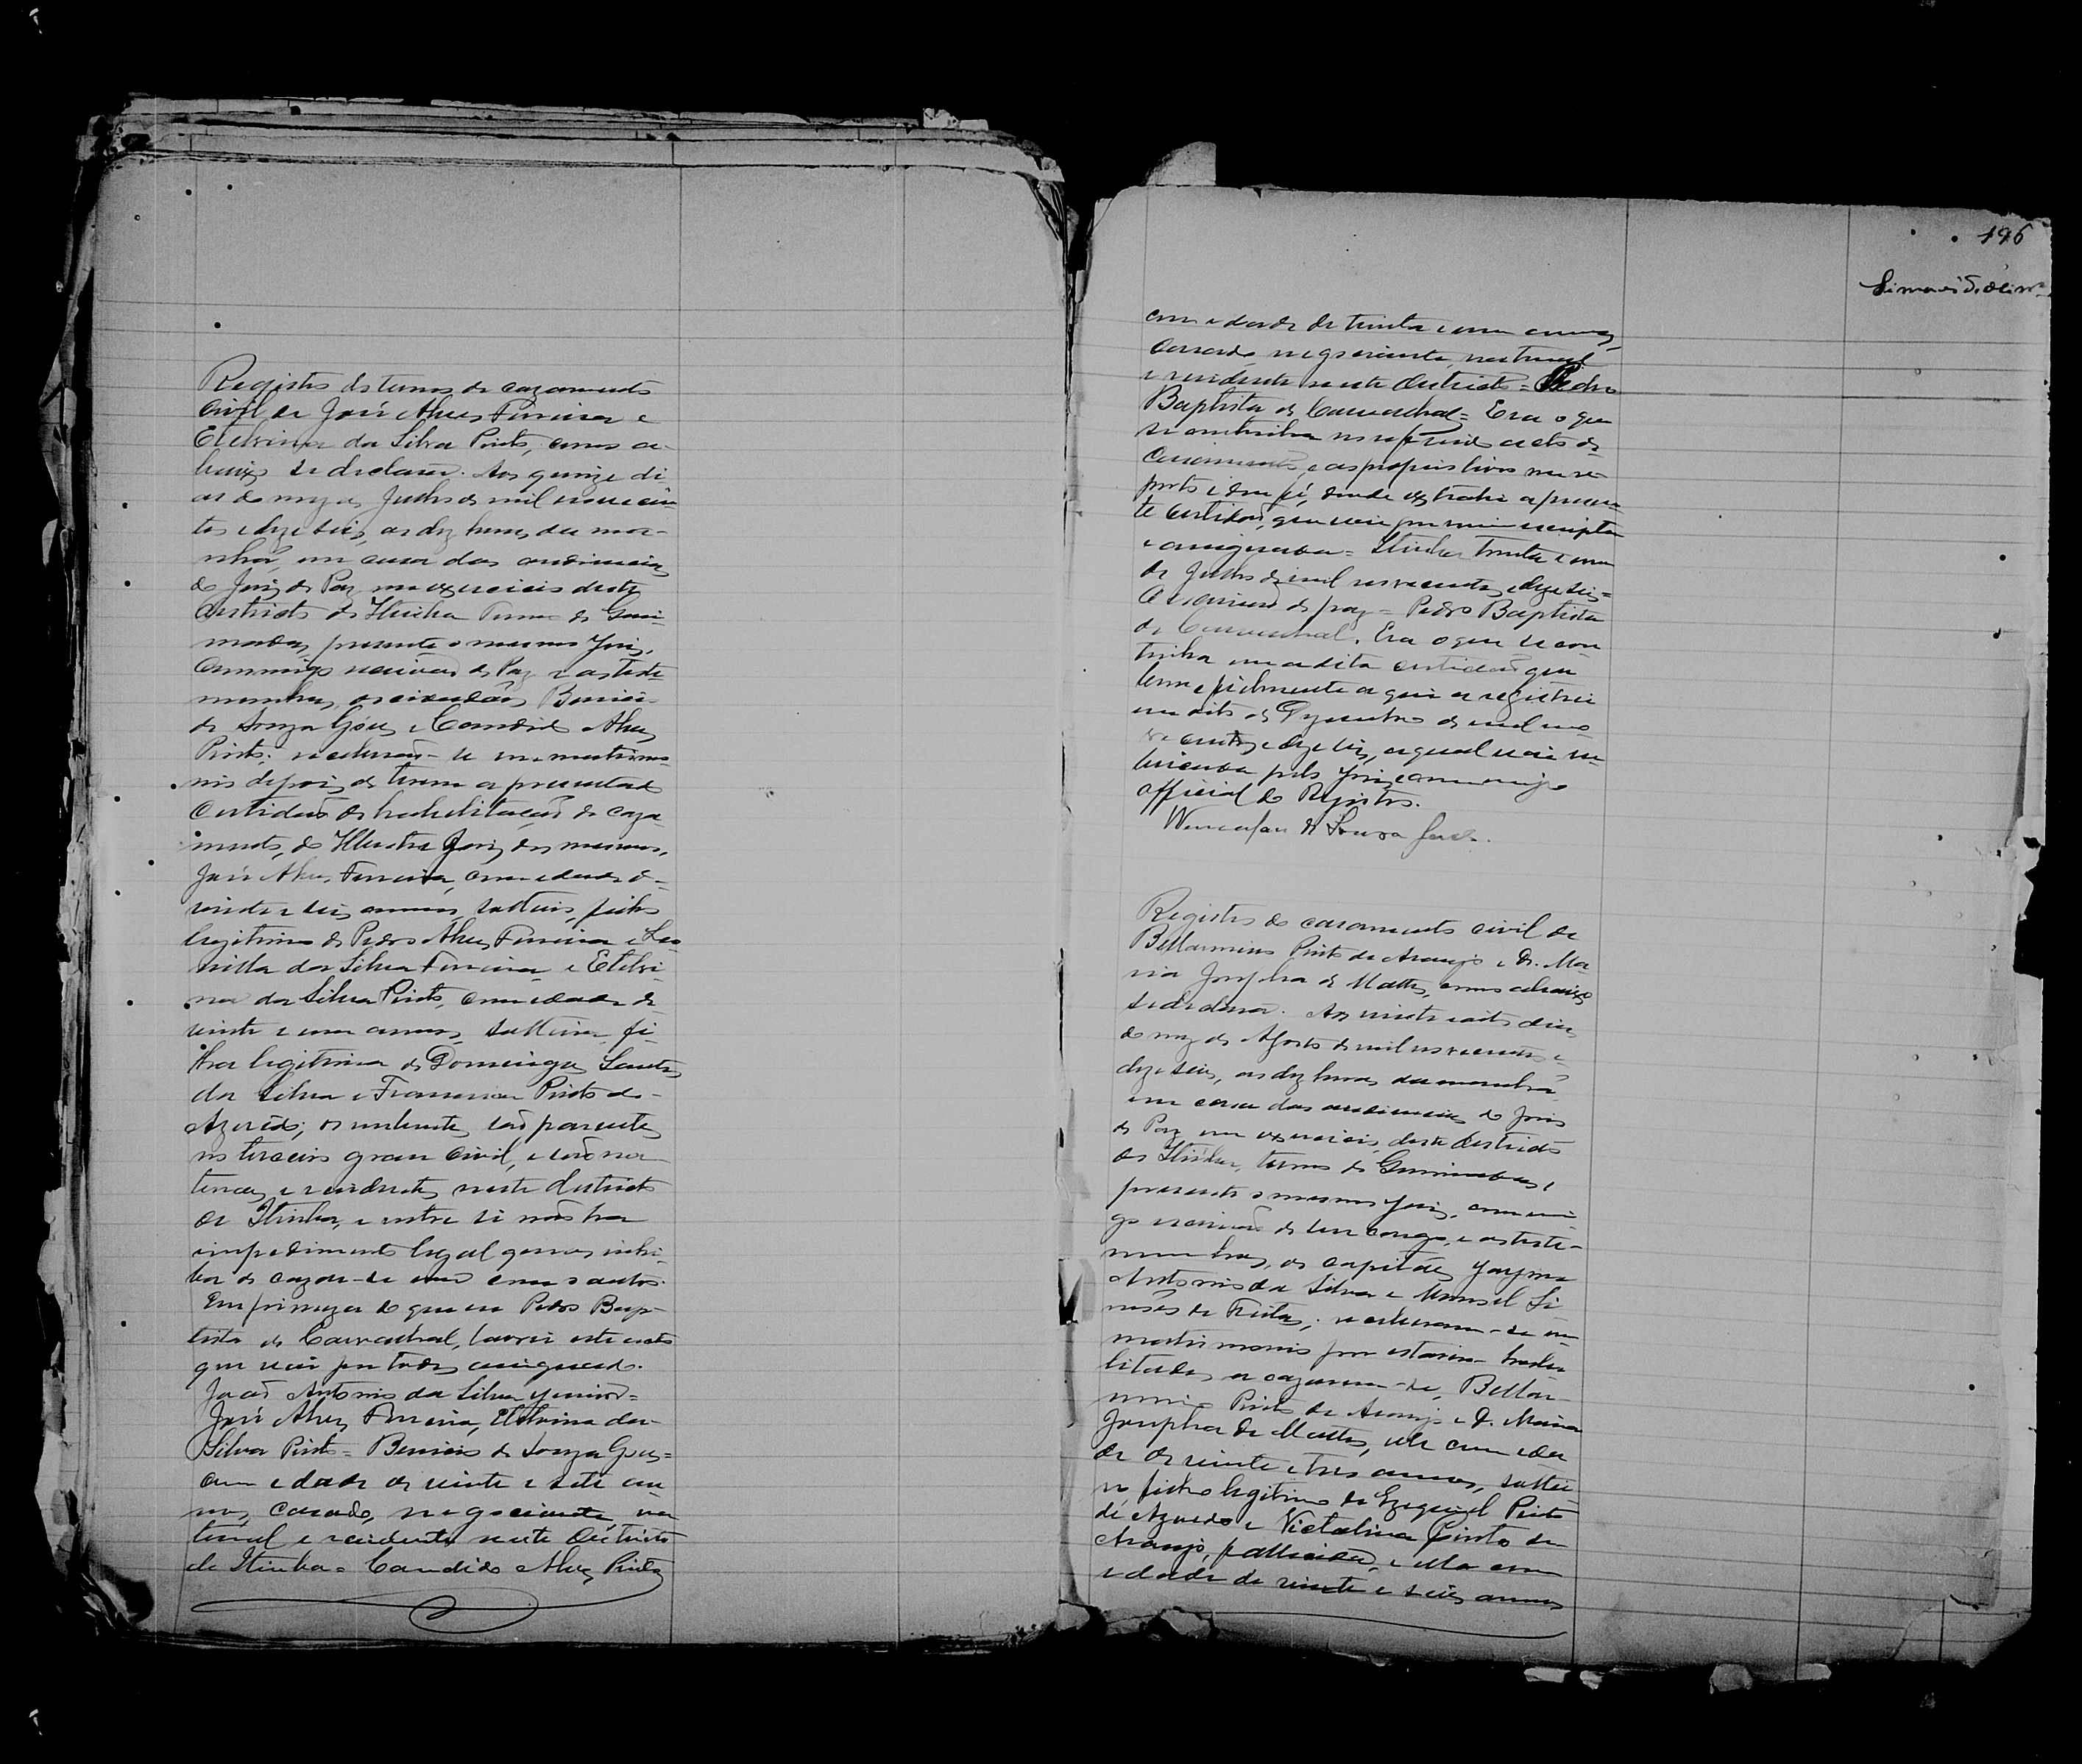 Registro do termo de cazamento
Civil de José Alves Ferreira e
Etelvina da Silva Pinto, como a-
baixo se declara. Aos quinze di
as do mez de Julho de mil novecen
tos e dezeseis, as dez horas da ma-
nhã, em casa das audiencias
do Juiz de Paz em exercicio deste
districto de Itiuba Termo de
presente o mesmo Juiz,
commigo escrivão de Paz e as teste
munhas, os cidadãos
de Souza Góes e Candido Alves
Pinto; receberão-se em matrimo-
nio depois de terem apresentado
Certidão de habilitação de caza-
mento, do Illustre Juiz dos mesmos,
José Alves Ferreira, com edade de
vinte e seis annos, solteiro, filho
legitimo de Pedro Alves Ferreira e
da Silva Ferreira e Etelvi-
na da Silva Pinto, com edade de
vinte e um annos, solteira, fi-
lha legitima de Domingos
da Silva e Francisca Pinto de
Azevêdo; os nubentes são parentes
no terceiro grau Civil, e são na
turaes e residentes neste districto
de Itiuba, e entre si não ha
impedimento legal que os inhi-
ba de cazar-se um com o outro.
Em firmeza do que eu Pedro Bap-
tista de Carvalhal, lavrei este acto
que vai por todos assignado.
João Antonio da Silva Junior=
José Alves Ferreira, Etelvina da
Silva Pinto= de Souza Goes=
com edade de vinte e sete an
nos, casado, negociante, na
tural e residente neste Districto
de Itiuba= Candido Alves Pinto
196
com edade de trinta e um annos,
Casado negociante, natural
e residente neste districto= Pedro
Baptista de Carvalhal= Era o que
se continha no referido acto de
Casamento, e ao proprio livro me re
porto e dou fé, donde extrahi a presen
te certidão, que vai por mim escripta
e assignada= Itiuba trinta e um
de Julho de mil novecentos e dezeseis=
O escrivão de paz= Pedro Baptista
de Carvalhal. Era o que se con
tinha em a dita certidão que
bem e fielmente aqui a registrei
em oito de Dezembro de mil no
ve centos e dezeseis, a qual vai ru
bricada pelo Juiz commigo
official do Registro.
de Souza
Registro do casamento civil de
Bellarmino Pinto de Araujo e D. Ma
ria Josepha de Mattos, como abaixo
se declara. Aos vinte e oito dias
do mez de Agosto de mil novecentos e
dezeseis, as dez horas da manhã
em casa das audiencias do Juiz
de Paz em exercicio, deste districto
de Itiuba, termo de
presente o mesmo Juiz, commi
go escrivão de seu cargo, e as teste-
munhas, os capitães
Antonio da Silva e Manoel Si
mões de Freitas; receberam-se em
matrimonio por estarem habi
litados a cazarem-se, Bellar
mino Pinto de Araujo e D. Maria
Josepha de Mattos, elle com eda
de de vinte e tres annos, soltei
ro filho legitimo de Ezequiel Pinto
de Azevedo e Victalina Pinto de
Araujo, fallecida, e ella com
edade de vinte e seis annos